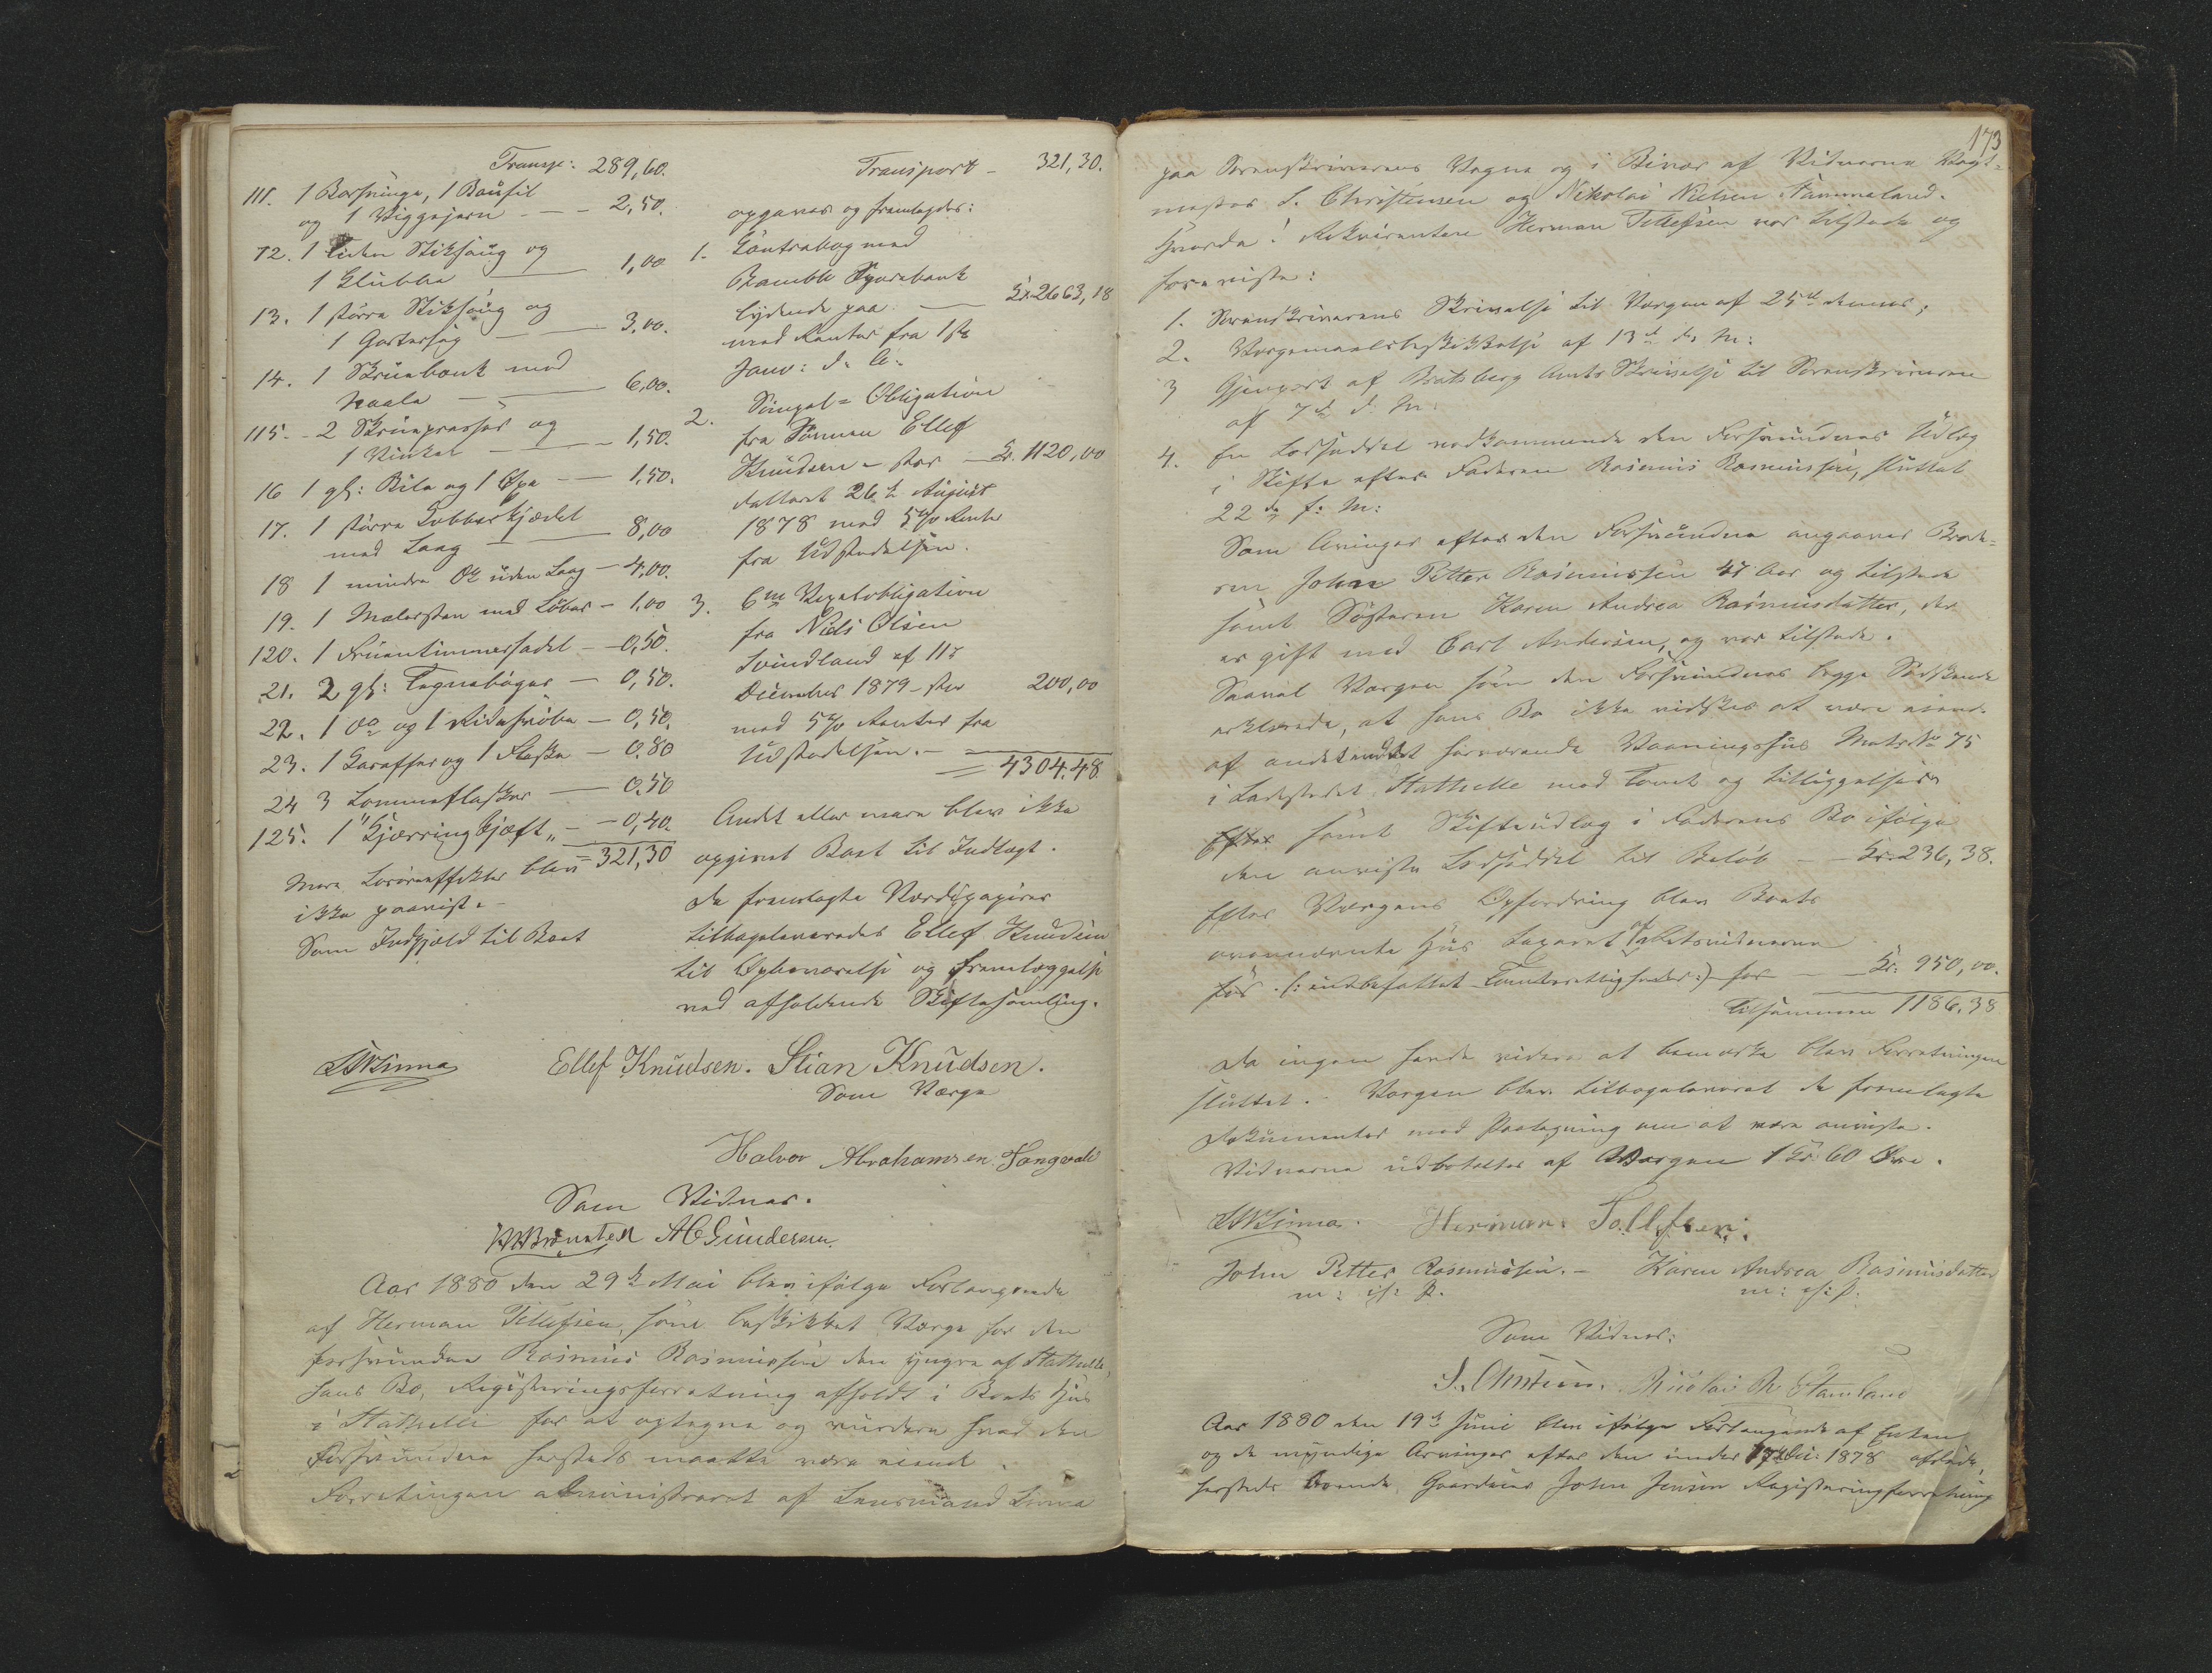 Transp: 289,60.
111. 1 Borsvinge, 1 Baufil
og 1 Viggejern - - - 2,50.
12. 1 liden Stiksaug og
1 Klubbe - 1,00
13. 1 større Stiksaug og
1 - 3,00.
14. 1 Skruebænk med
- 6,00.
115. - 2 Skruepresser og
1 Vinkel - - 1,50.
16 1 gl: Bile og 1 Øxe - - 1,50.
17. 1 større Kobberkjedel
med Laag - 8,00
18 1 mindre do uden Laag - 4,00.
19. 1 Malersten med Løber - 1,00
120. 1 Fruentimmersadel - 0,50.
21. 2 gl: Tegnebøger - 0,50.
22. 1 do og 1 - 0,50.
23. 1 Karaffel og 1 Flaske - 0,80
24 3 Lommeflasker - 0,50
125. 1 "Kjærringkjæft" - 0,40.
= 321,30
Mere Løsøreeffekter blev
ikke paavist. -
Som Indgjæld til Boet
Transport - 321,30.
opgaves og fremlagdes:
1. Contrabog med
Bamble Sparebank
lydende paa - Kr. 2663,18
med Renter fra 1ste
Janr: d. A.
2. Simpel = Obligation
fra Sønnen Ellef
Knudsen - stor - Kr. 1120,00
datteret 26de August
1878 med 5% Rente
fra Udstedelsen.
3. Obligation
fra Niels Olsen
af 11te
December 1879 - stor 200,00
med 5% Renter fra
Udstedelsen. -
= 4304.48
Andet eller mere blev ikke
opgivet Boet til Indtægt.
De fremlagte Værdipapirer
tilbageleveredes Ellef Knudsen
til Opbevarelse og Fremlæggelse
ved afholdende Skiftesamling.
Linna
Ellef Knudsen. Stian Knudsen.
Som Værge
Halvor Abrahamsen Langvali
Som Vidner.
A C Gundersen.
Aar 1880 den 29de Mai blev ifølge Forlangende
af Herman Tellefsen, som beskikket Værge for den
forsvundne Rasmus Rasmussen den yngre af Stathelle,
hans Bo, Registreringsforretning afholdt i Boets Hus
i Stathelle for at optegne og vurdere hvad den
Forsvundne hersteds maatte være eiende.
Forretningen administreret af Lensmand Linna
173
paa Sorenskriverens Vegne og i Bivær af Vidnerne Vagt=
mester S. Christensen og Nikolai Nielsen Tammeland.
Hvorda! Rekvirenten Herman Tellefsen var tilstede og
foreviste:
1. Sorenskriverens Skrivelse til Værgen af 25de dennes;
2. Værgemaalsbeskikkelse af 13de ds M:
3 Gjenpart af Bratsberg Amts Skrivelse til Sorenskriveren
af 7de d. M:
4. En Lodseddel vedkommende den Forsvundnes Udlæg
i Skifte efter Faderen Rasmus Rasmussen, sluttet
22de f: M:
Som Arvinger efter den Forsvundne angaaves Brode=
ren Johan Petter Rasmussen 47 Aar og tilstede
samt Søsteren Karen Andrea Rasmusdatter, der
er gift med Carl Andersen, og var tilstede.
Saavel Værgen som den Forsvundnes begge Sødskende
erklærede, at hans Bo ikke vidstes at være eiende
af andet end et herværende Vaaningshus Matr No 75
i Ladestedet Stathelle med Tomt og Tilliggelser
Efter samt Skifteudlæg i Faderens Bo ifølge
den anviste Lodseddel til Beløb - - Kr. 236,38.
Efter Værgens Opfordring blev Boets
ovennævnte Hus taxeret af Retsvidnerne
for (: indbefattet Tomterettigheder :) for - Kr. 950,00.
Tilsammen 1186,38
Da ingen havde videre at bemærke blev Forretningen
sluttet. Værgen blev tilbageleveret de fremlagte
Dokumenter med Paategning om at være anviste.
Vidnerne udbetaltes af Værgen 1 Kr. 60 Øre.
Linna. Herman Tellefsen.
John Petter Rasmussen. - Karen Andrea Rasmusdatter
m: if: P. m: if: P.
Som Vidner:
S. Christensen. Nicolai N. Stamland
Aar 1880 den 19de Juni blev ifølge Forlangende af Enken
og de myndige Arvinger efter den under 17de 1878 afdøde,
hersteds boende Gaardeier John Jensen Registreringsforretning